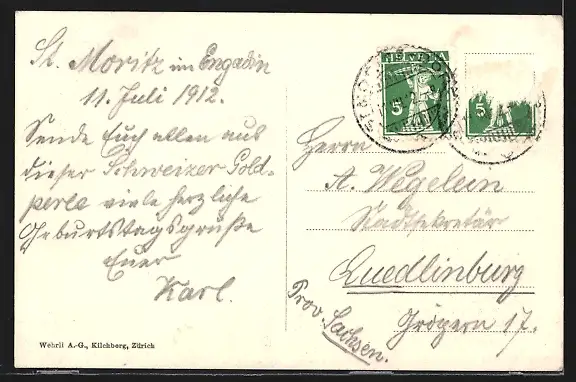 St. Moritz im Engadin
11. Juli 1912.
Sende Euch allen aus
dieser Schweizer Gold-
perle viele herzliche
Geburtstagsgrüße
Euer
Karl.
Wehrli A.-G., Kilchberg, Zürich
HELVETIA
5
5
Herrn
A. Wegelein
Stadtsekretär
Quedlinburg
Gröpern 17.
Prov. Sachsen.